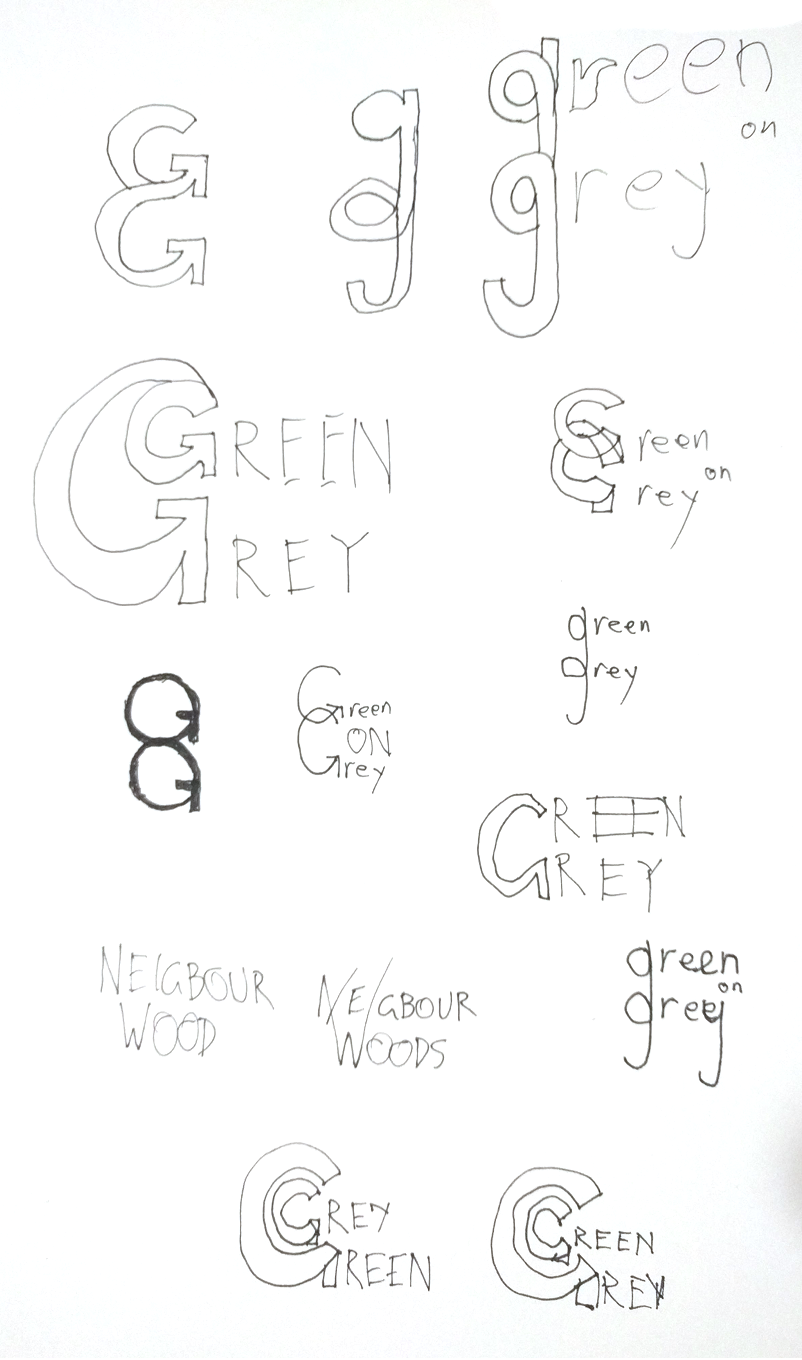 G
G
g
g
green
on
grey
GREEN
GREY
Green
on
Grey
green
grey
G
G
Green
ON
Grey
GREEN
GREY
NEIGBOUR
WOOD
NEIGBOUR
WOODS
green
on
grey
GREY
GREEN
GREEN
GREY